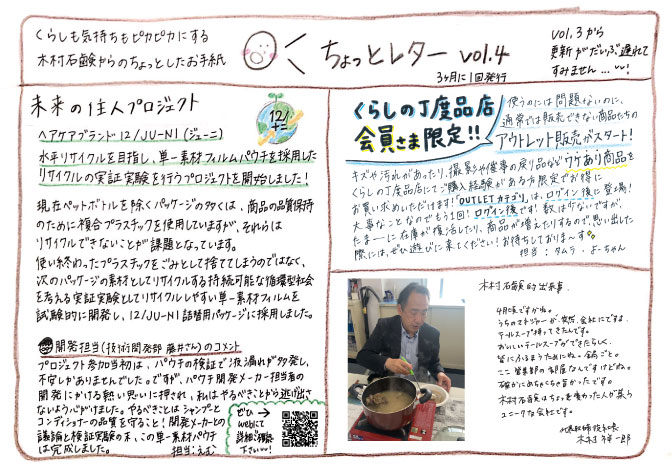 くらしも気持ちもピカピカにする
木村石鹸からのちょっとしたお手紙
ちょっとレター vol.4
3ヶ月に1回発行
vol.3から
更新がだいぶ遅れて
すみません…!
未来の住人プロジェクト
ヘアケアブランド12/JU-NI(ジューニ)
水平リサイクルを目指し、単一素材フィルムパウチを採用した
リサイクルの実証実験を行うプロジェクトを開始しました!
現在ペットボトルを除くパッケージの多くは、商品の品質保持
のために複合プラスチックを使用していますが、それらは
リサイクルできないことが課題となっています。
使い終わったプラスチックをごみとして捨ててしまうのではなく、
次のパッケージの素材としてリサイクルする持続可能な循環型社会
を考える実証実験としてリサイクルしやすい単一素材フィルムを
試験的に開発し、12/JU-NI詰替用パッケージに採用しました。
開発担当(技術開発部 藤井さん)のコメント
プロジェクト参加当初は、パウチの検証で液漏れが多発し、
不安しかありませんでした。ですが、パウチ開発メーカー担当者の
開発にかける熱い思いに押され、私はやるべきことから逃げ出さ
ないよう心がけました。やるべきこととはシャンプーと
コンディショナーの品質を守ること!開発メーカーとの
議論と検証実験の末、この単一素材パウチ
は完成しました。
担当:えむ
ぜひ
webにて
詳細ご確認
下さい
12
くらしの丁度品店
会員さま限定!!
使うのには問題ないのに、
通常では販売できない商品たちの
アウトレット販売がスタート!
キズや汚れがあったり、撮影や催事の戻り品などワケあり商品を
くらしの丁度品店にてご購入経験がある方限定でお得に
お買い求めいただけます!「OUTLETカテゴリ」は、ログイン後に登場!
大事なことなのでもう1回!ログイン後です!数は少ないですが、
たまーに在庫が復活したり、商品が増えたりするので思い出した
際には、ぜひ遊びに来てください!お待ちしておりまーす
担当:タムラ、よーちゃん
木村石鹸的出来事
4月頃ですかね。
うちのマネジャーが突然、会社にですよ、
テールスープ持ってきたんです。
おいしいテールスープができたらしく、
皆にふるまうためにね。鍋ごと。
ここ営業部の部屋なんですけどね。
確かにめちゃくちゃ旨かったです。
木村石鹸はちょっと変わった人が集う
ユニークな会社です。
代表取締役社長
木村祥一郎